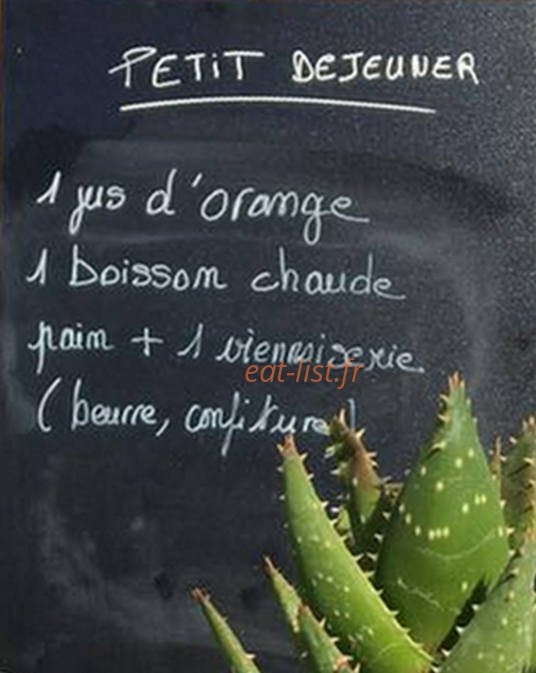 PETIT DEJEUNER
1 jus d'orange
1 boisson chaude
pain + 1 viennoiserie
eat-list.fr
(beurre, confiture)